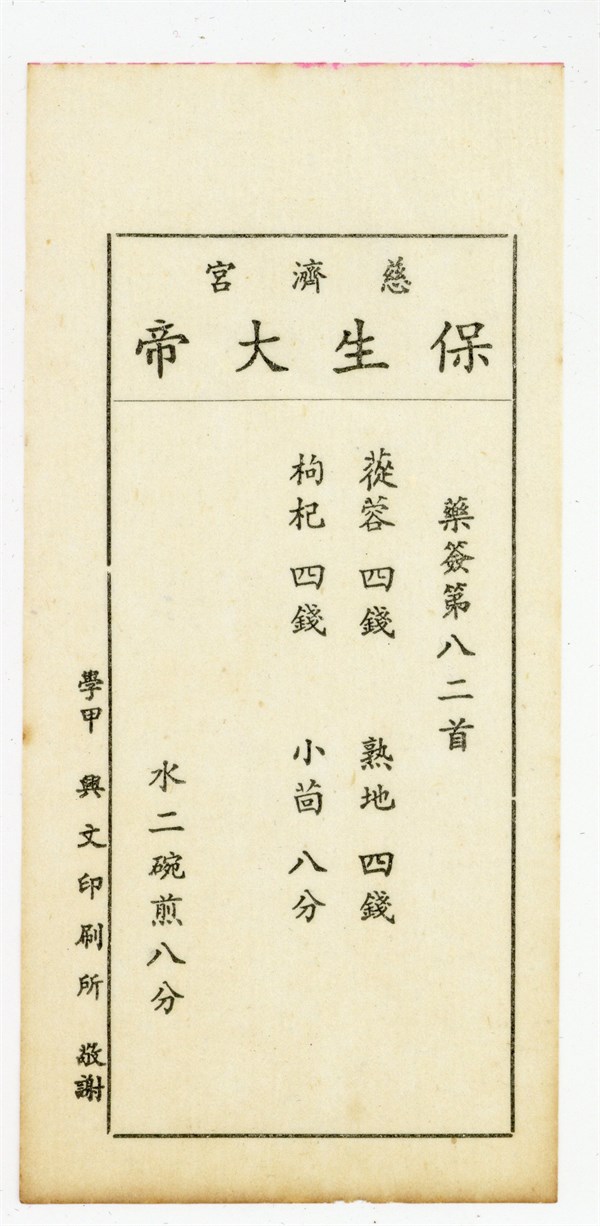 慈濟宮
保生大帝
藥簽第八二首
蓯蓉 四錢 熟地 四錢
枸杞 四錢 小茴 八分
水二碗煎八分
學甲 興文印刷所 敬謝